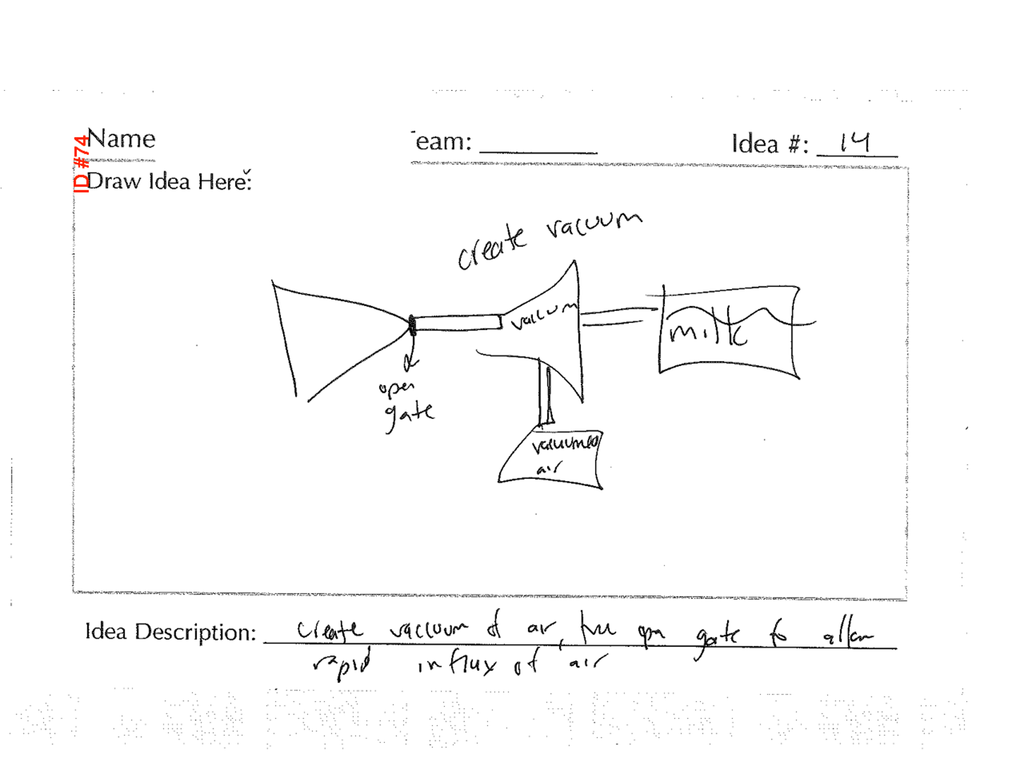 ID #74
Name eam: Idea #: 14
Draw Idea Here:
create vacuum
vacuum
milk
open
gate
vacuumed
air
Idea Description: create vaccuum of air, open gate to allow
rapid influx of air